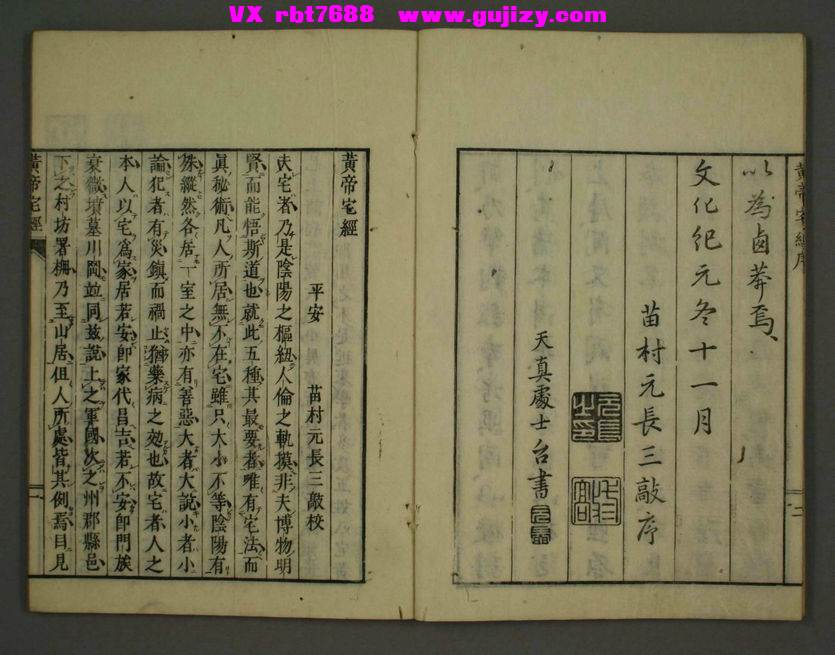 VX rbt7688 www.gujizy.com
黃帝宅經序
以為鹵莽焉
文化紀元冬十一月
苗村元長三敲序
天真處士台書
二
黃帝宅經
平安 苗村元長三敲校
夫宅者乃是陰陽之樞紐人倫之軌摸非夫博物明
賢而能悟斯道也就此五種其最要者唯有宅法而
眞秘術凡人所居無不在宅雖只大小不等陰陽有
殊縱然各居一室之中亦有善惡大者大說小者小
論犯者有災鎮而禍止猶藥病之効也故宅者人之
本人以宅爲家居若安卽家代昌吉若不安卽門族
衰微墳墓川岡並同兹說上之軍國次之州郡縣邑
下之村坊署柵乃至山居但人所處皆其例焉目見
黃帝宅經
一